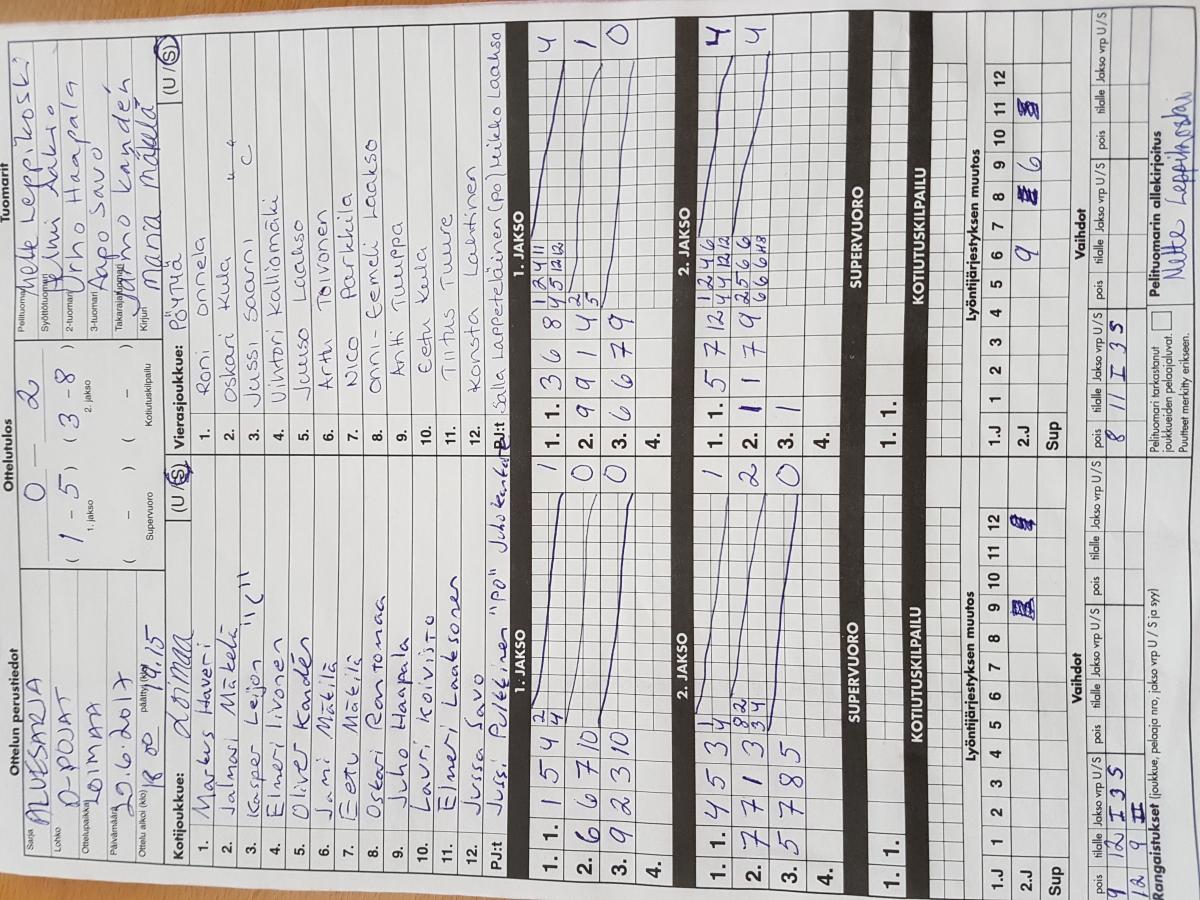 Ottelun perustiedot
Sarja ALUESARJA
Lohko D-POJAT
Ottelupaikka LOIMAA
Päivämäärä 29.6.2017
Ottelu alkoi (klo) 18 00 päättyi (klo) 19.15
Ottelutulos
0 – 2
( 1 – 5 ) ( 3 – 8 )
1. jakso 2. jakso
( – ) ( – )
Supervuoro Kotiutuskilpailu
Tuomarit
Pelituomari Nette Leppikoski
Syöttötuomari
2-tuomari Urho Haapala
3-tuomari Aapo Savo
Takarajatuomari Jarmo Kandén
Kirjuri Maria Mäkelä
Kotijoukkue: Loimaa (U / S)
1. Markus Haveri
2. Jalmari Mäkelä
3. Kasper Leijon "C"
4. Elmeri Iivonen
5. Oliver Kandén
6. Jami Mäkilä
7. Eetu Mäkilä
8. Oskari Rantomaa
9. Juho Haapala
10. Lauri Koivisto
11. Elmeri Laaksonen
12. Jussa Savo
PJ:t Jussi Pulkkinen "PO" Juho
Vierasjoukkue: Pöytyä (U / S)
1. Roni Onnela
2. Oskari Kula
3. Jussi Saarni C
4. Vihtori Kalliomäki
5. Juuso Laakso
6. Artu Toivonen
7. Nico Parkkila
8. Onni-Eemeli Laakso
9. Antti Tuuppa
10. Eetu Keula
11. Tiitus Tuure
12. Konsta Lahtinen
PJ:t Salla Lappeteläinen (po) Mikko Laakso
1. JAKSO
1. 1. 1 5 4 2 4 1
2. 6 6 7 10 0
3. 9 2 3 10 0
4.
1. JAKSO
1. 1. 3 6 8 1 2 4 11 4 5 12 12 4
2. 9 9 1 4 2 5 1
3. 6 6 7 9 0
4.
2. JAKSO
1. 1. 4 5 3 1 4 1
2. 7 7 1 3 8 2 3 4 2
3. 5 7 8 5 0
4.
2. JAKSO
1. 1. 5 7 12 1 2 4 6 4 4 12 12 4
2. 1 1 7 9 2 5 6 6 6 6 6 4
3. 1
4.
SUPERVUORO
1. 1.
SUPERVUORO
1. 1.
KOTIUTUSKILPAILU
KOTIUTUSKILPAILU
Lyöntijärjestyksen muutos
1.J 1 2 3 4 5 6 7 8 9 10 11 12
2.J
Sup
Lyöntijärjestyksen muutos
1.J 1 2 3 4 5 6 7 8 9 10 11 12
2.J 9 6
Sup
Vaihdot
pois tilalle Jakso vrp U/S pois tilalle Jakso vrp U/S pois tilalle Jakso vrp U/S
9 12 I 3 S
12 9 II
Vaihdot
pois tilalle Jakso vrp U/S pois tilalle Jakso vrp U/S pois tilalle Jakso vrp U/S
8 11 I 3 S
Rangaistukset (joukkue, pelaaja nro, jakso vrp U / S ja syy)
Pelituomari tarkastanut
joukkueiden pelaajaluvat.
Puutteet merkitty erikseen.
Pelituomarin allekirjoitus
Nette Leppikoski